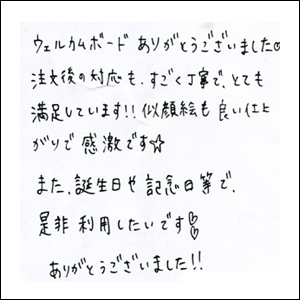 ウェルカムボード ありがとうございました♡
注文後の対応も、すごく丁寧で、とても
満足しています!! 似顔絵も 良い仕上
がりで 感激です☆
また、誕生日や 記念日等で、
是非 利用したいです♡♡
ありがとうございました!!